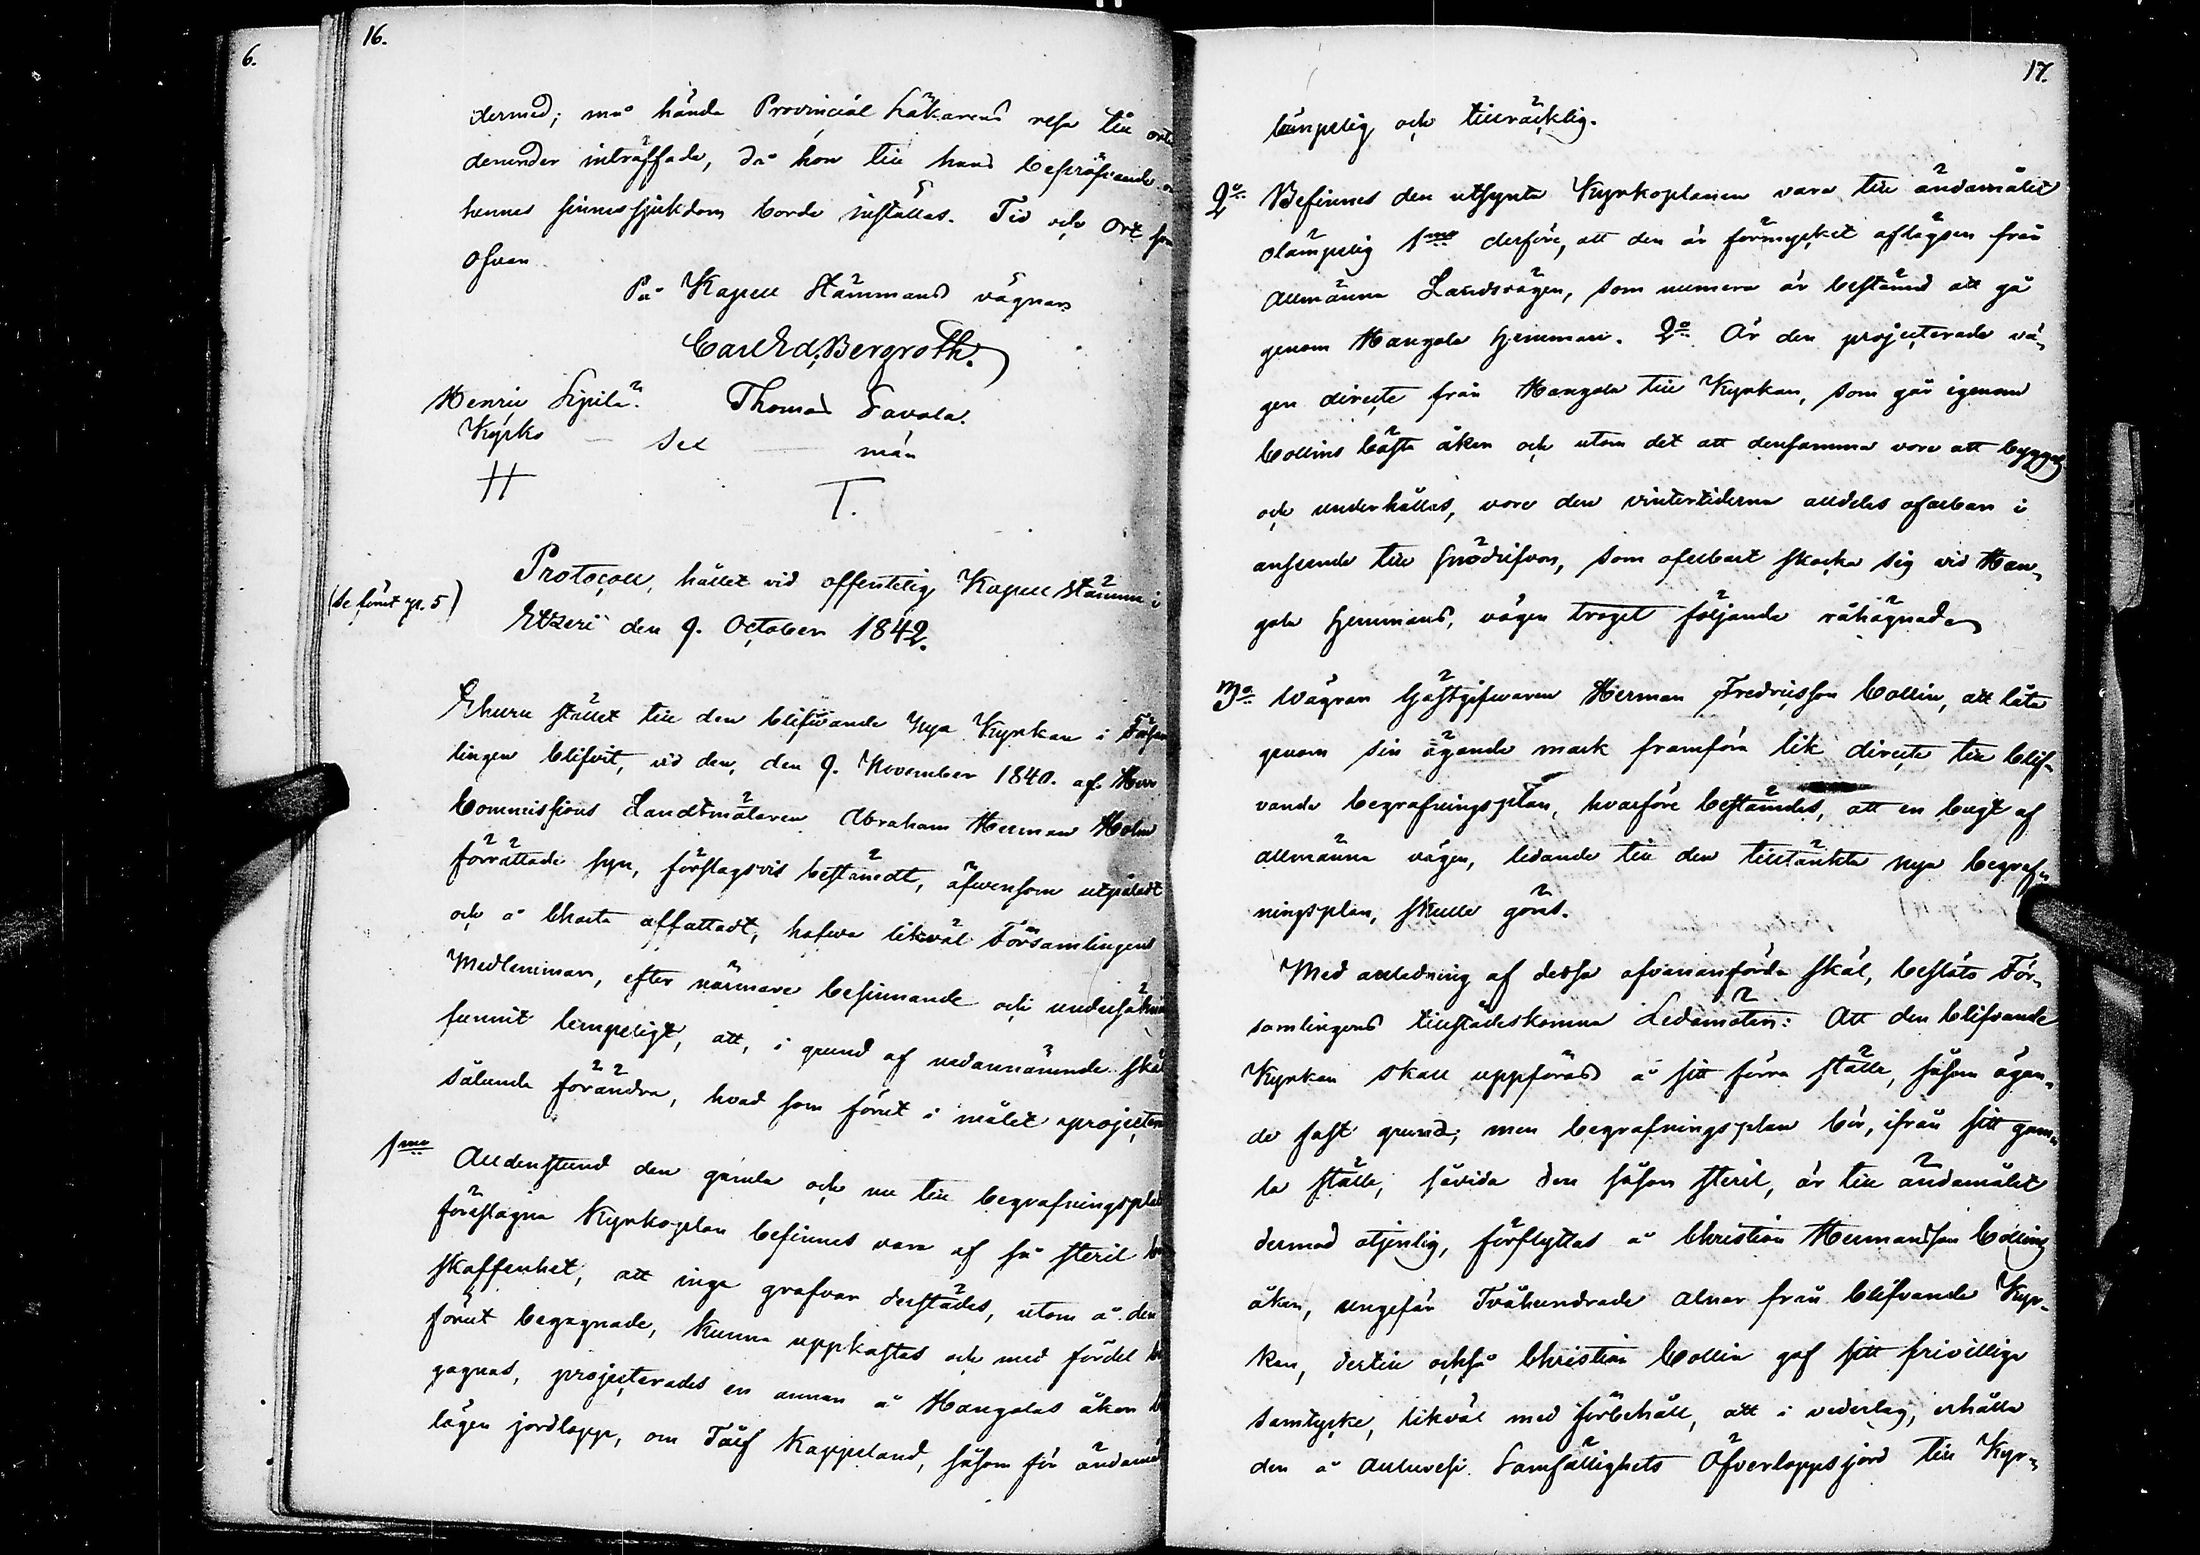 6.
16.
dermed; må hända Provincial Läkarens resa till orten
derunder inträffade, då hon till hans bepröfvande om
hennes sinnessjukdom borde inställas. Tid och Ort som
ofvan
På Kapell Stämmans vägnar
Carl Ed. Bergroth.
Henric Sipilä. Thomas Savola.
Kyrko — Sex — män
H T.
(se förut p. 5)
Protocoll, hållet vid offentelig Kapell stämma i
Etzeri den 9. October 1842.
Ehuru stället till den blifwande Nya Kyrkan i Församlingen
lingen blifvit, vid den, den 9. November 1840. af Herr
Commissions Landtmätaren Abraham Herman Holm
förrättade syn, förslagsvis bestämdt, äfwensom utpåladt
och å Charta affattadt, hafwa likväl Församlingens
Medlemmar, efter närmare besinnande och undersökning
funnit lempeligt, att, i grund af nedannämnde skäl
sålunda förändra, hvad som förut i målet projecterats
1mo Alldenstund den gamla och nu till begrafningsplan
föreslagna Kyrkoplan befinnes vara af så steril be
skaffenhet, att inga grafvar derstädes, utom å den
förut begagnade, kunna uppkastas och med fördel be
gagnas, projecterades en annan å Hangalas åker be
lägen jordlapp, om Tolf Kappeland, såsom för ändamålet
17.
lämpelig och tillräcklig.
2o Befinnes den utsynta Kyrkoplanen vara till ändamålet
olämpelig 1mo derföre, att den är förmycket aflägsen från
Allmänna Landsvägen, som numera är bestämd att gå
genom Hangala hemman. 2o Är den projecterade vä-
gen directe från Hangala till Kyrkan, som går igenom
Collins bästa åker och utom det att densamma vore att byggas
och underhållas, vore den vintertiderna alldeles ofarbar i
anseende till snödrifvor, som ofelbart skocka sig vid Han-
gala hemmans, vägen troget följande råhägnader
3o Wägrar Gästgifwaren Herman Fredricsson Collin, att låta
genom sin ägande mark framföra lik directe till blif-
vande begrafningsplan, hvarföre bestämdes, att en bugt af
allmänna vägen, ledande till den tilltänkta nya begraf-
ningsplan, skulle göras.
Med anledning af dessa ofvananförda skäl, beslöto För-
samlingens tillstädeskomna Ledamöter: Att den blifvande
Kyrkan skall uppföras å sitt förra ställe, såsom ägan-
de fast grund; men begrafningsplan bör, ifrån sitt gam-
la ställe, såvida den såsom steril, är till ändamålet
dermed otjenlig, förflyttas å Christian Hermansson Collins
åker, ungefär Tvåhundrade alnar från blifvande Kyr-
kan, dertill också Christian Collin gaf sitt frivillige
samtycke, likväl med förbehåll, att i vederlag, erhålla
den å Aulusesi Samfällighets Öfverloppsjord till Kyr-